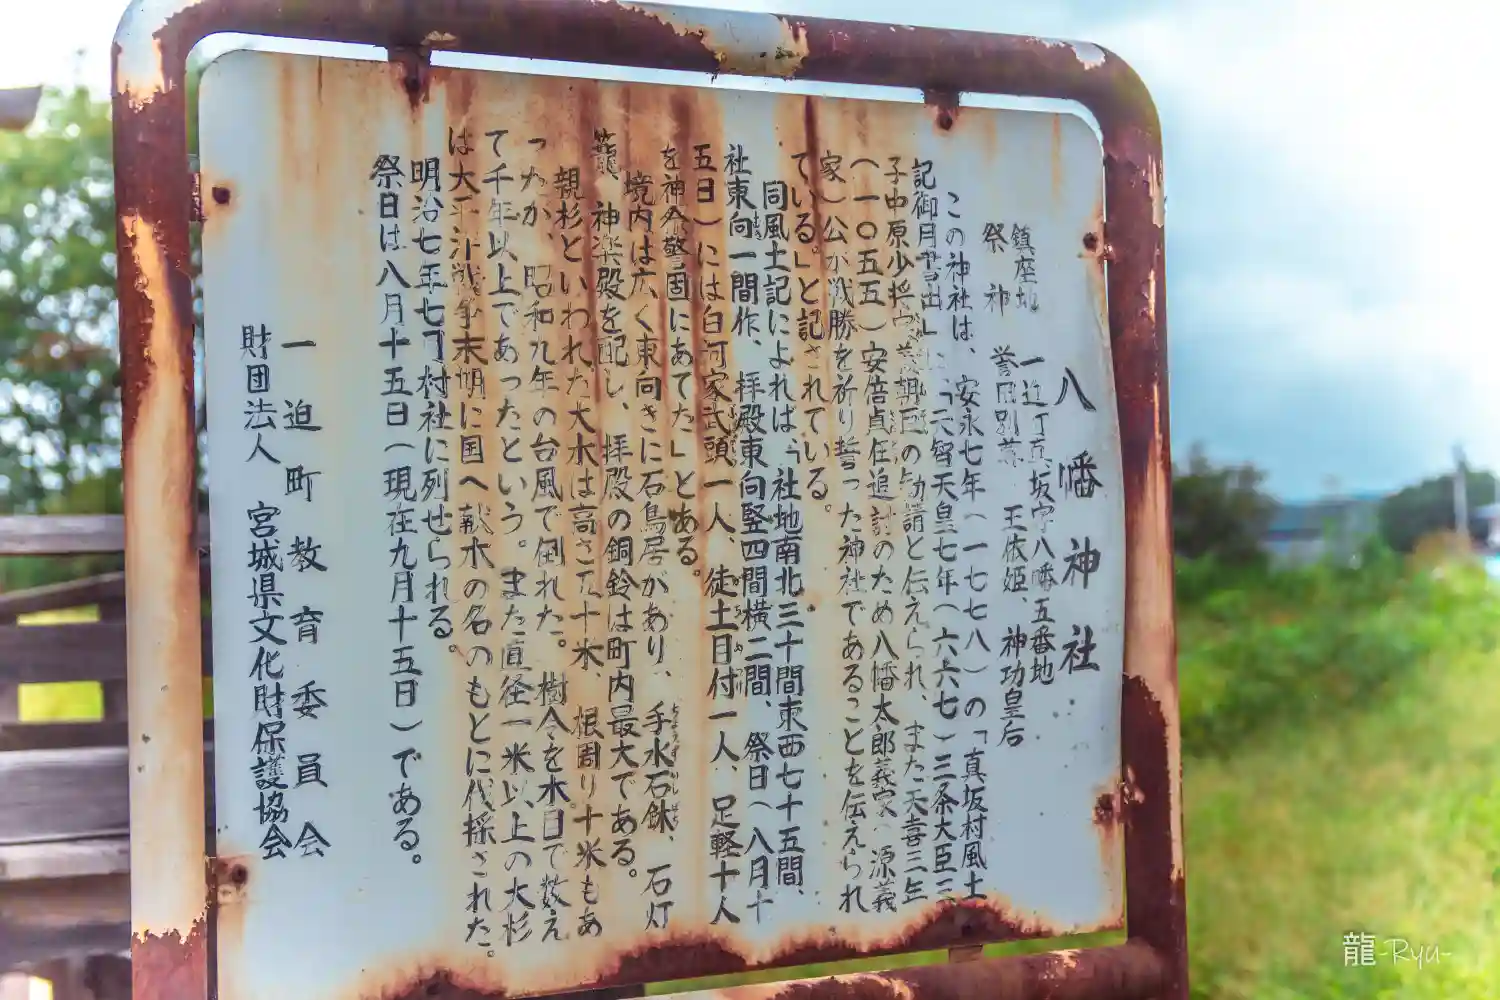 八幡神社
鎮座地 一迫町真坂字八幡五番地
祭神 誉田別尊 玉依姫、神功皇后
この神社は、安永七年(一七七八)の「真坂村風土
記御用書出」に「天智天皇七年(六六七)三条大臣三
子中原少将 義朝臣の勧請と伝えられ、また天喜三年
(一〇五五)安倍貞任追討のため八幡太郎義家(源義
家)公が戦勝を祈り誓った神社であることを伝えられ
ている。」と記されている。
同風土記によれば、「社地南北三十間東西七十五間、
社東向一間作、拝殿東向竪四間横二間、祭日(八月十
五日)には白河家武頭一人、徒士目付一人、足軽十人
を神前警固にあてた」とある。
境内は広く東向きに石鳥居があり、手水石鉢、石灯
籠、神楽殿を配し、拝殿の銅鈴は町内最大である。
親杉といわれた大木は高さ五十米、根周り十米もあ
ったが、昭和九年の台風で倒れた。樹令を木目で数え
て千年以上であったという。また直径一米以上の大杉
は太平洋戦争末期に国へ献木の名のもとに伐採された。
明治七年七月村社に列せられる。
祭日は八月十五日(現在九月十五日)である。
一迫町教育委員会
財団法人 宮城県文化財保護協会
龍-Ryu-